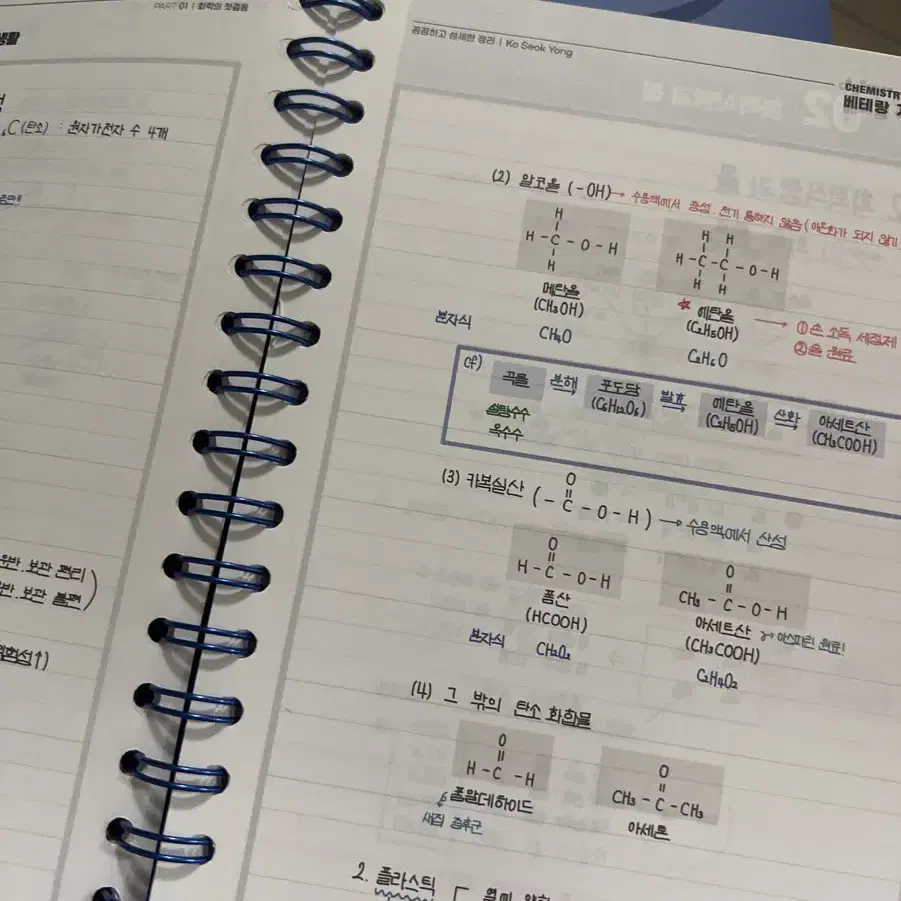 PART 01 | 화학의 첫걸음
생활
₆C (탄소) : 원자가전자 수 4개
꼼꼼하고 섬세한 정리 | Ko Seok Yong
CHEMISTRY
베테랑
(2) 알코올 (-OH) → 수용액에서 중성. 전기 통하지 않음 (이온화가 되지 않기
H
H-C-O-H
H
메탄올
(CH₃OH)
분자식 CH₄O
H H
H-C-C-O-H
H H
☆ 에탄올
(C₂H₅OH)
C₂H₆O
→ ①손 소독 세정제
②술 원료
cf) 곡물 분해 → 포도당 (C₆H₁₂O₆) 발효 → 에탄올 (C₂H₅OH) 산화 → 아세트산 (CH₃COOH)
사탕수수
옥수수
(3) 카복실산 (-C-O-H) → 수용액에서 산성
O
O
H-C-O-H
폼산
(HCOOH)
분자식 CH₂O₂
O
CH₃-C-O-H
아세트산 아스피린 원료!
(CH₃COOH)
C₂H₄O₂
(4) 그 밖의 탄소 화합물
O
H-C-H
폼알데하이드
새집 증후군
O
CH₃-C-CH₃
아세톤
운반. 보관 편리
운반. 보관 불편
위험성↑)
2. 플라스틱